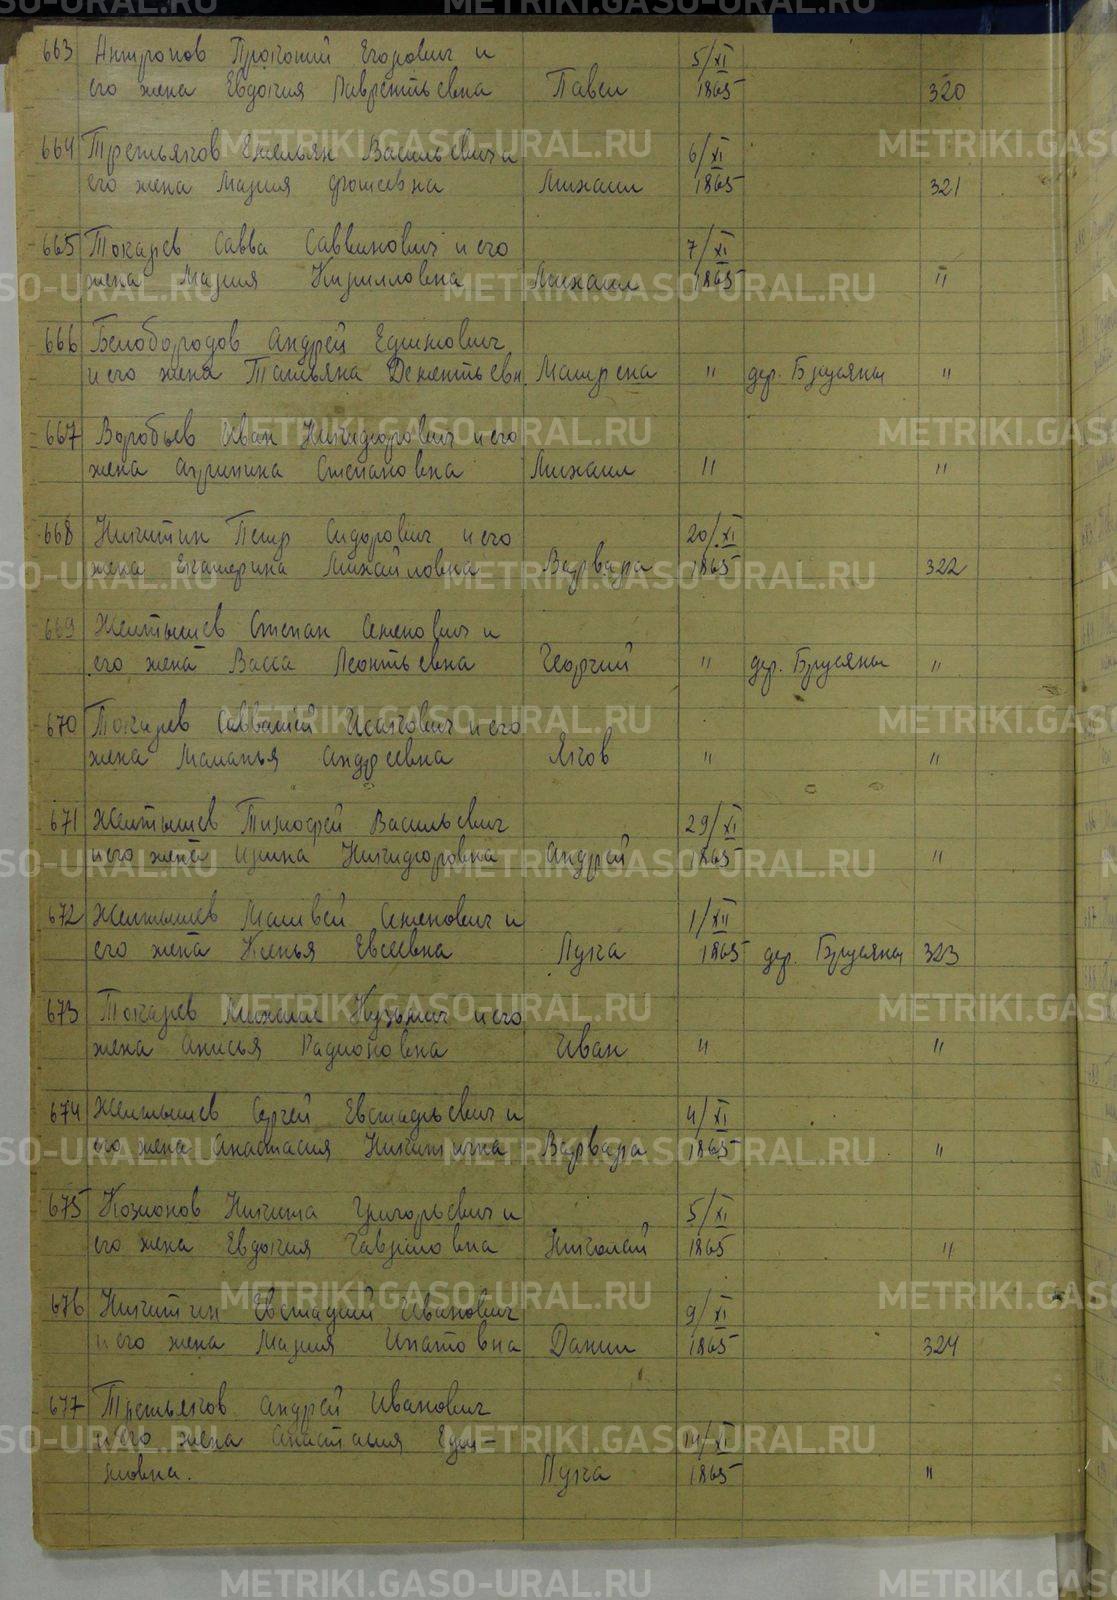 663 Антропов Прокопий Егорович и 5/XI
его жена Евдокия Лаврентьевна Павел 1865 320
664 Третьяков Емельян Васильевич и 6/XI
его жена Мария Фокеевна Михаил 1865 321
665 Токарев Савва Саввинович и его 7/XI
жена Мария Кирилловна Михаил 1865 "
666 Белобородов Андрей Едимович
и его жена Татьяна Дементьевн. Матрена " дер. Брусяны "
667 Воробьев Иван Никифорович и его
жена Агрипина Степановна Михаил " "
668 Никитин Петр Сидорович и его 20/XI
жена Екатерина Михайловна Варвара 1865 322
669 Желтышев Степан Семенович и
его жена Васса Леонтьевна Георгий " дер. Брусяны "
670 Токарев Савватей Исакович и его
жена Маланья Андреевна Яков " "
671 Желтышев Тимофей Васильевич 29/XI
и его жена Ирина Никифоровна Андрей 1865 "
672 Желтышев Матвей Семенович и 1/XII
его жена Ксенья Евсеевна Лука 1865 дер. Брусяны 323
673 Токарев Михаил Кузьмич и его
жена Анисья Радионовна Иван " "
674 Желтышев Сергей Евстафьевич и 4/XI
его жена Анастасия Никитична Варвара 1865 "
675 Козионов Никита Григорьевич и 5/XI
его жена Евдокия Гавриловна Николай 1865 "
676 Никитин Евстафий Иванович 9/XI
и его жена Мария Ипатовна Данил 1865 324
677 Третьяков Андрей Иванович
и его жена Анастасия Еди- 14/XI
мовна. Лука 1865 "
METRIKI.GASO-URAL.RU